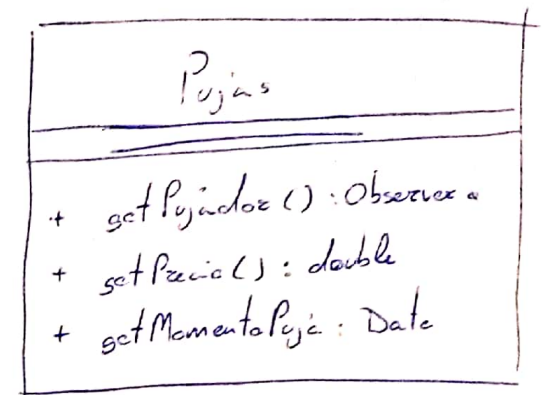 Pujas
+ getPujador() : Observer
+ getPrecio() : double
+ getMomentoPuja : Date